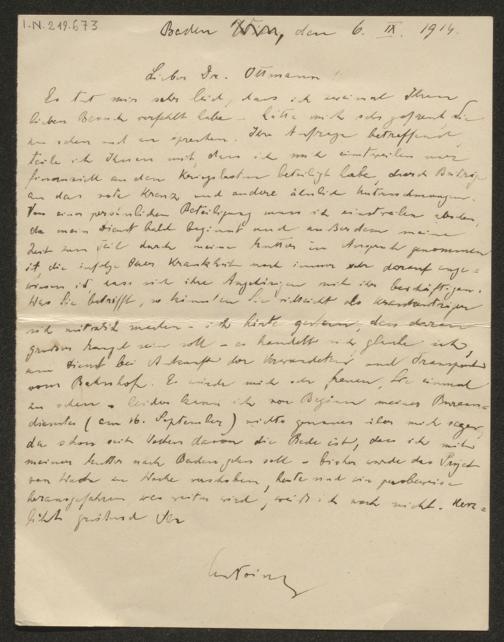 I.N. 249.673
Baden Wien, den 6. IX. 1914.
Lieber Dr. Ottmann!
Es tut mir sehr leid, dass ich zweimal Ihren
lieben Besuch verfehlt habe – hätte mich sehr gefreut Sie
zu sehen und zu sprechen. Ihre Anfrage betreffend,
teile ich Ihnen mit, dass ich mich einstweilen nur
finanziell an den Kriegslasten beteiligt habe, durch Beiträge
an das rote Kreuz und andere ähnliche Unternehmungen.
Von einer persönlichen Beteiligung muss ich einstweilen absehen,
da mein Dienst bald beginnt und ausserdem meine
Zeit zum Teil durch meine Mutter in Anspruch genommen
ist, die infolge ihrer Krankheit noch immer sehr darauf ange-
wiesen ist, dass sich ihre Angehörigen mit ihr beschäftigen.
Was Sie betrifft, so könnten Sie vielleicht als Krankenträger
sich nützlich machen – ich hörte gestern, dass daran
grosser Mangel sein soll – es handelt sich, glaube ich,
um Dienst bei Ankunft der Verwundeten und Transport
vom Bahnhof. Es würde mich sehr freuen, Sie einmal
zu sehen – leider kann ich vor Beginn meines Bureau-
dienstes (am 16. September) nichts genaues über mich sagen,
da schon seit Wochen davon die Rede ist, dass ich mit
meiner Mutter nach Baden gehen soll – bisher wurde das Projekt
von Woche zu Woche verschoben, heute sind wir probeweise
herausgefahren, was weiter wird, weiß ich noch nicht. Herz-
lichst grüssend Ihr